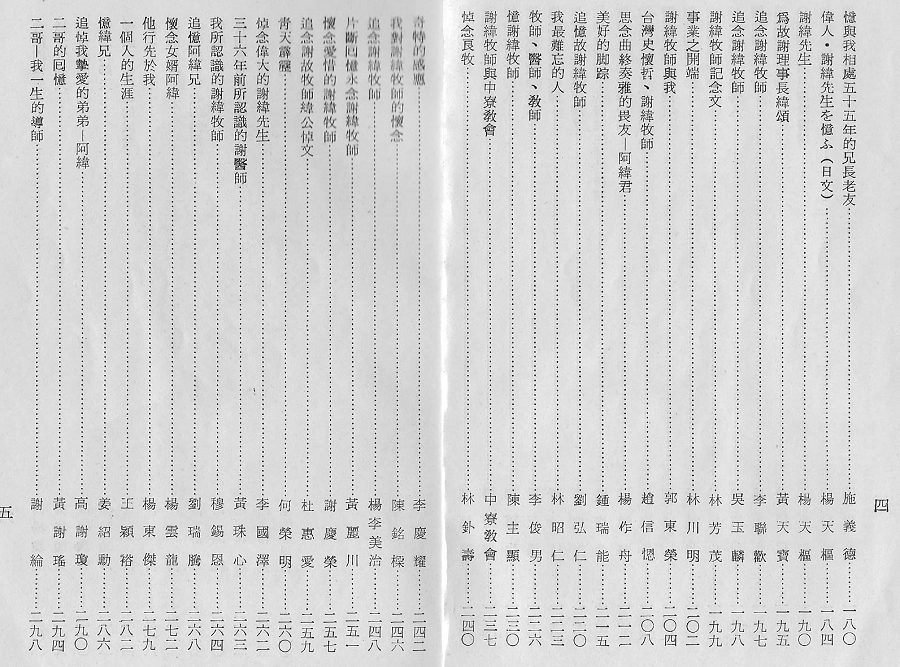 四
憶與我相處五十五年的兄長老友……施義德……一八〇
偉人・謝緯先生を憶ふ（日文）……楊天樞……一八四
謝緯先生……楊天樞……一九〇
爲故謝理事長緯頌……黃天寶……一九五
追念謝緯牧師……李聯歡……一九七
追念謝緯牧師……吳玉麟……一九八
謝緯牧師記念文……林芳茂……一九九
事業之開端……林川明……二〇二
謝緯牧師與我……郭東榮……二〇四
台灣史懷哲、謝緯牧師……趙信愢……二〇八
思念曲終奏雅的畏友—阿緯君……楊作舟……二一二
美好的脚踪……鍾瑞能……二一五
追憶故謝緯牧師……劉弘仁……二二〇
我最難忘的人……林昭仁……二二三
牧師、醫師、教師……李俊男……二二六
憶謝緯牧師……陳主顯……二三〇
謝緯牧師與中寮教會……中寮教會……二三七
悼念良牧……林針壽……二四〇
奇特的感應……李慶耀……二四二
我對謝緯牧師的懷念……陳銘樑……二四六
追念謝緯牧師……楊李美治……二四八
片斷回憶永念謝緯牧師……黃麗川……二五一
懷念愛惜的謝緯牧師……謝慶榮……二五七
追念謝故牧師緯公悼文……杜惠愛……二五九
靑天霹靂……何榮明……二六〇
悼念偉大的謝緯先生……李國澤……二六二
三十六年前所認識的謝醫師……黃珠心……二六三
我所認識的謝緯牧師……穆錫恩……二六四
追憶阿緯兄……劉瑞騰……二六八
懷念女婿阿緯……楊雲龍……二七二
他行先於我……楊東傑……二七九
一個人的生涯……王穎裕……二八二
憶緯兄……姜紹勳……二八六
追悼我摯愛的弟弟—阿緯……高謝瓊……二九〇
二哥的回憶……黃謝瑤……二九四
二哥—我一生的導師……謝綸……二九八
五